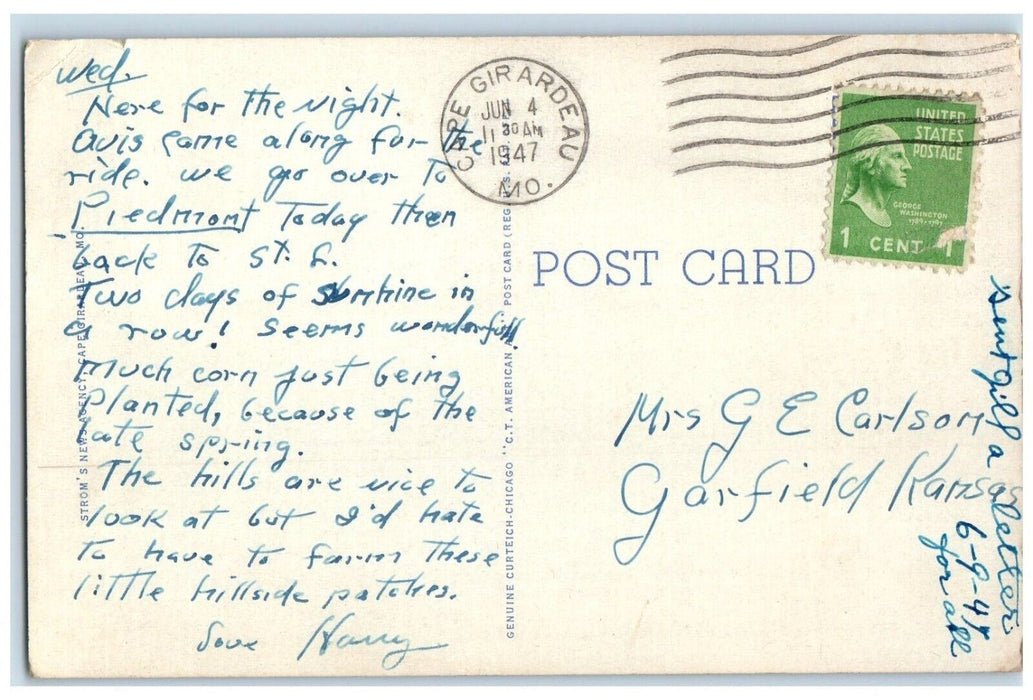 Wed.
Here for the night.
Avis came along for the
ride. We go over to
Piedmont today then
back to St. L.
Two days of sunshine in
a row! Seems wonderful!
Much corn just being
planted, because of the
late spring.
The hills are nice to
look at but I'd hate
to have to farm these
little hillside patches.
Love Harry
STROM'S NEWS AGENCY, CAPE GIRARDEAU, MO.
GENUINE CURTEICH-CHICAGO "C.T. AMERICAN POST CARD (REG. U.S.
CAPE GIRARDEAU
JUN 4
11 30 AM
1947
MO.
UNITED
STATES
POSTAGE
GEORGE
WASHINGTON
1789-1797
1 CENT 1
POST CARD
Mrs G E Carlson
Garfield Kansas
sent a letter
6-9-47
for all